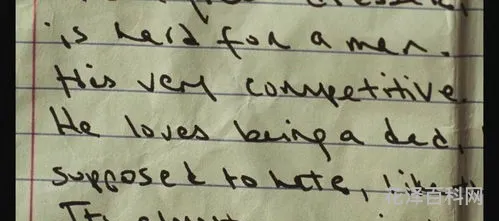 is hard for a man.
His very competitive.
He loves being a dad,
suppose to hate, like
It's almost
花泽百科网